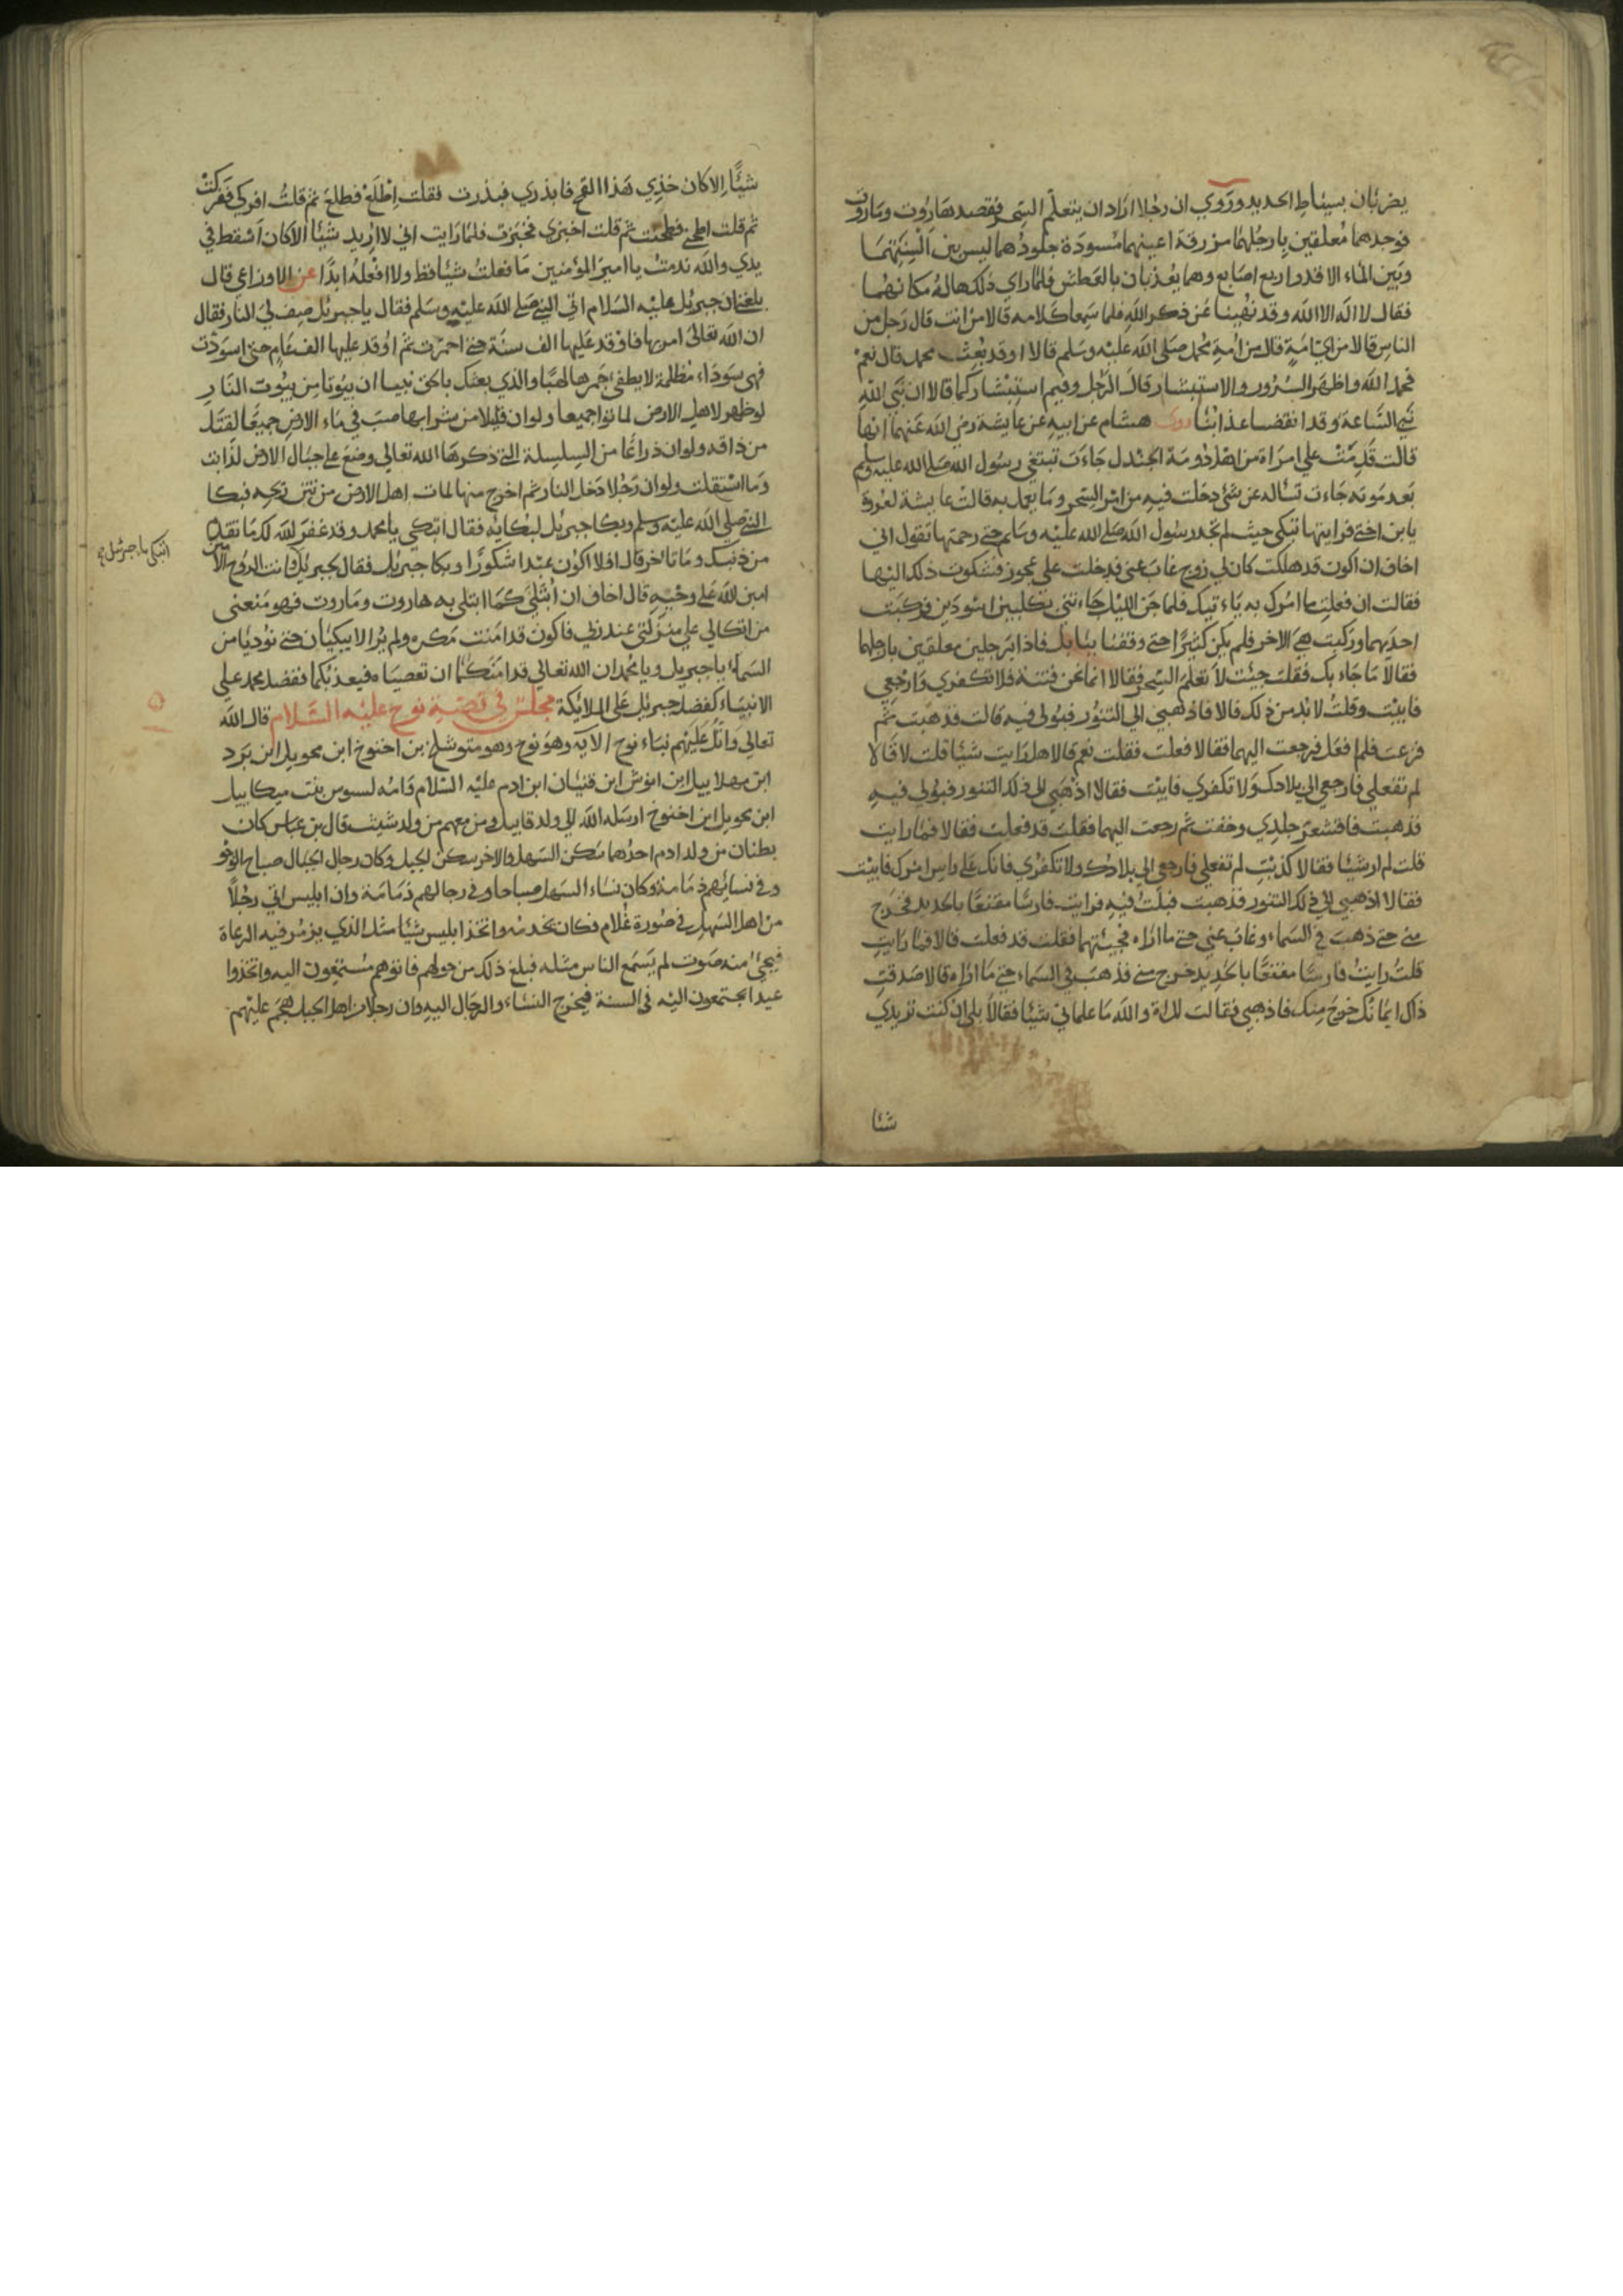 يضربان بسياط الحديد وروي ان رجلا اراد ان يتعلم السحر فقصد هاروت وماروت
فوجدهما معلقين بارجلهما مزرقة اعينهما مسودة جلودهما ليس بين السنتهما
وبين الماء الا قدر اربع اصابع وهما يعذبان بالعطش فلما راي ذلك هاله مكانهما
فقال لا اله الا الله وقد نهينا عن ذكر الله فلما سمعا كلامه قالا من انت قال رجل من
الناس قالا من اي امة قال من امة محمد صلى الله عليه وسلم قالا او قد بعث محمد قال نعم
فحمدا الله واظهرا السرور والاستبشار قال الرجل وفيم استبشاركما قالا ان نبي الله
نبي الساعة وقد انقضا عذابنا روى هشام عن ابيه عن عايشة رضي الله عنها انها
قالت قدمت علي امراة من اهل دومة الجندل جاءت تبتغي رسول الله صلى الله عليه وسلم
بعد موته جاءت تساله عن شئ دخلت فيه من امر السحر وما يعمل به قالت عايشة لعروة
يا بن اختي فرايتها تبكي حيث لم تجد رسول الله صلى الله عليه وسلم حتى رحمتها تقول اني
اخاف ان اكون قد هلكت كان لي زوج غاب عني فدخلت علي عجوز فشكوت ذلك اليها
فقالت ان فعلت ما امرك به ياءتيك فلما جن الليل جاءتني بكلبين اسودين فركبت
احديهما وركبت هي الاخر فلم يكن كثيرا حتى وقفنا ببابل فاذا برجلين معلقين بارجلهما
فقالا ما جاء بك فقلت جيئت لا تعلم السحر فقالا انما نحن فتنة فلا تكفري وارجعي
فابيت وقلت لا بد من ذلك قالا فاذهبي الي التنور فبولي فيه قالت فذهبت ثم
فزعت فلم افعل فرجعت اليهما فقالا فعلت فقلت نعم قالا هل رايت شيئا قلت لا قالا
لم تفعلي فارجعي الي بلادك ولا تكفري فابيت فقالا اذهبي الي ذلك التنور فبولي فيه
فذهبت فاقشعر جلدي وخفت ثم رجعت اليهما فقلت قد فعلت فقالا فما رايت
قلت لم ار شيئا فقالا كذبت لم تفعلي فارجعي الي بلادك ولا تكفري فانك على راس امرك فابيت
فقالا اذهبي الي ذلك التنور فذهبت فبلت فيه فرايت فارسا مقنعا بالحديد فخرج
مني حتى ذهب في السماء وغاب عني حتى ما اراه فجيئتهما فقلت قد فعلت قالا فما رايت
قلت رايت فارسا مقنعا بالحديد خرج مني فذهب في السماء حتى ما اراه قالا صدقت
ذاك ايمانك خرج منك فاذهبي فقالت للمراة والله ما علماني شيئا فقالا بلى ان كنت تريدي
شئا
شيئا الا كان خذي هذا القمح فابذري فبذرت فقلت اطلع فطلع ثم قلت افركي ففركت
ثم قلت اطحني فطحنت ثم قلت اخبزي فخبزت فلما رايت اني لا اريد شيئا الا كان اسقط في
يدي والله ندمت يا امير المؤمنين ما فعلت شيئا قط ولا افعله ابدا عن الاوزاعي قال
بلغني ان جبريل عليه السلام اتي النبي صلى الله عليه وسلم فقال يا جبريل صف لي النار فقال
ان الله تعالى امر بها فاوقد عليها الف سنة حتى احمرت ثم اوقد عليها الف عام حتى اسودت
فهي سوداء مظلمة لا يطفي جمرها لهبا والذي بعثك بالحق نبيا ان بيوتا من بيوت النار
لو ظهر لاهل الارض لماتوا جميعا ولو ان قليلا من شرابها صب في ماء الارض جميعا لقتل
من ذاقه ولو ان ذراعا من السلسلة التي ذكرها الله تعالى وضع على جبال الارض لذابت
وما استقلت ولو ان رجلا دخل النار ثم اخرج منها لمات اهل الارض من نتن ريحه فبكا
النبي صلى الله عليه وسلم وبكا جبريل لبكايه فقال اتبكي يا محمد وقد غفر الله لك ما تقدم
من ذنبك وما تاخر قال افلا اكون عبدا شكورا وبكا جبريل فقال لجبريل وانت الروح الامين
اتبكي يا جبريل صح
امين الله على وحيه قال اخاف ان ابتلى كما ابتلي به هاروت وماروت فهو منعني
من اتكالي على منزلتي عند ربي فاكون قد امنت مكره ولم يزالا يبكيان حتى نوديا من
السماء يا جبريل ويا محمد ان الله تعالى قد امنكما ان تعصياه فيعذبكما ففضل محمد على
الانبياء كفضل جبريل على الملائكة مجلس في قصة نوح عليه السلام قال الله
تعالى واتل عليهم نباء نوح الآية وهو نوح وهو متوشلخ بن اخنوخ ابن محويل ابن يرد
ابن مهلاييل ابن انوش ابن قينان ابن ادم عليه السلام وامه لسوس بنت ميكاييل
ابن محويل ابن اخنوخ ارسله الله الي ولد قابيل ومن معهم من ولد شيث قال بن عباس كان
بطنان من ولد ادم احدهما سكن السهل والاخر سكن الجبل وكان رجال الجبال صباح الوجوه
وفي نسائهم ذمامة وكان نساء السهل صباحا وفي رجالهم ذمامة وان ابليس اتي رجلا
من اهل السهل في صورة غلام فكان يخدمه واتخذ ابليس شيئا مثل الذي يزمر فيه الرعاة
فيجئ منه صوت لم يسمع الناس مثله فبلغ ذلك من حولهم فاتوهم مستمعون اليه واتخذوا
عيدا يجتمعون اليه في السنة فيخرج النساء والرجال اليه وان رجلا من اهل الجبل هجم عليهم